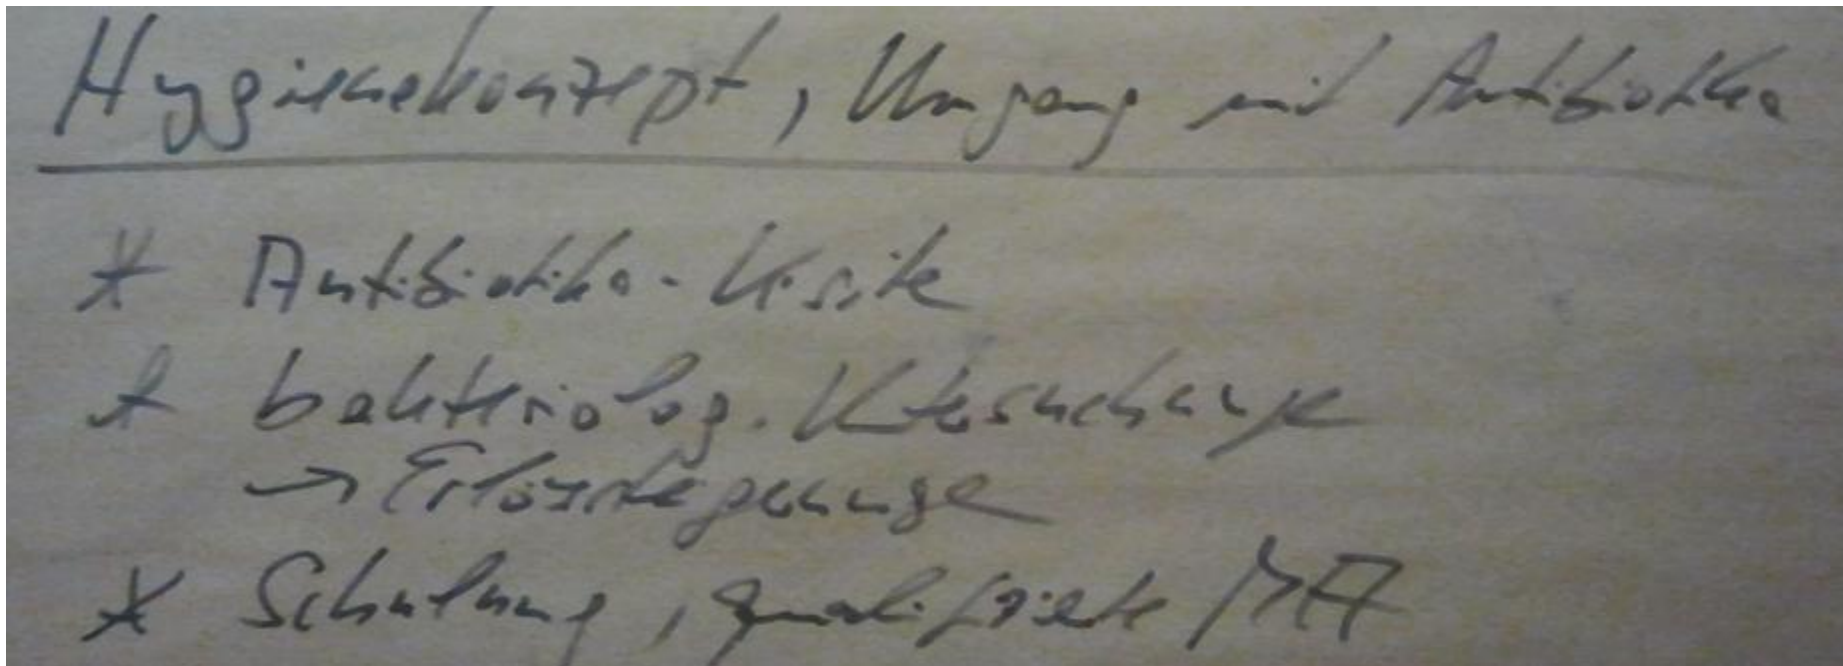 Hygienekonzept, Umgang mit Antibiotika
* Antibiotika-Visite
* bakteriolog. Untersuchunge
→
* Schulung, qualifizierte MA